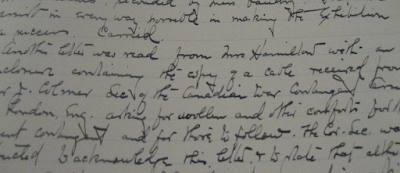 seconded by Miss
assist in every way possible in making the Exhibition
a success. Carried.
Another letter was read from Mrs Hamilton with an
enclosure containing the copy of a cable received from
J. Colmer Sec. of the Canadian War Contingent
London, Eng. asking for woollen and other comforts for th
contingent and for those to follow. The Cor-Sec. was
ructed to acknowledge this letter & to state that